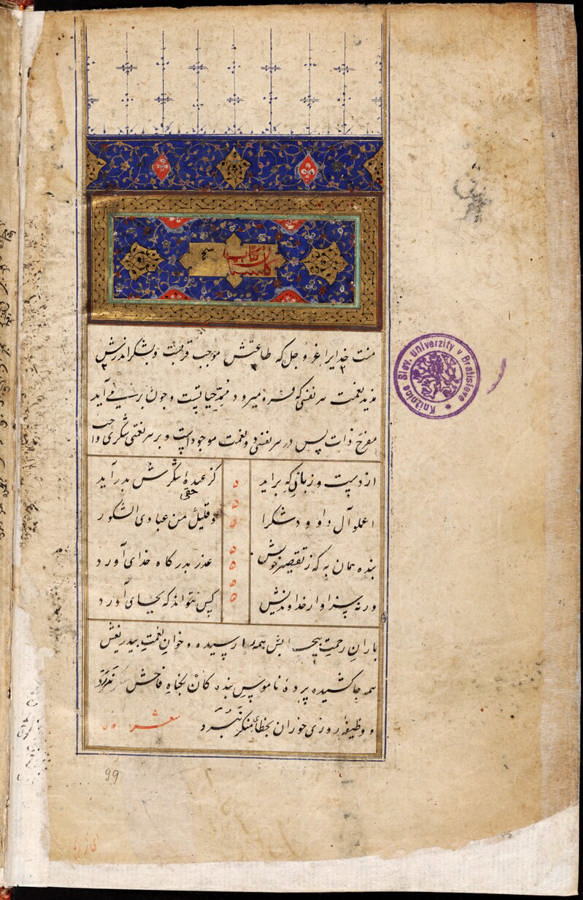 کتاب گلستان
منت خدایرا عز و جل که طاعتش موجب قربتست و بشکر اندرش
مزید نعمت هر نفسی که فرو میرود ممد حیاتست و چون بر می آید
مفرح ذات پس در هر نفسی دو نعمت موجود است و بر هر نعمتی شکری واجب
از دست و زبانی که برآید کز عهدهٔ شکرش بدر آید
اعملوا آل داود شکرا و قلیل من عبادی الشکور
بنده همان به که ز تقصیر خویش عذر بدرگاه خدای آورد
ورنه سزاوار خداوندیش کس نتواند که بجای آورد
باران رحمت بیحسابش همه را رسیده و خوان نعمت بیدریغش
همه جا کشیده پردهٔ ناموس بندگان بگناه فاحش ندرد
و وظیفه روزی خوران بخطای منکر نبرد شعر
Knižnica Slov. univerzity v Bratislave
99